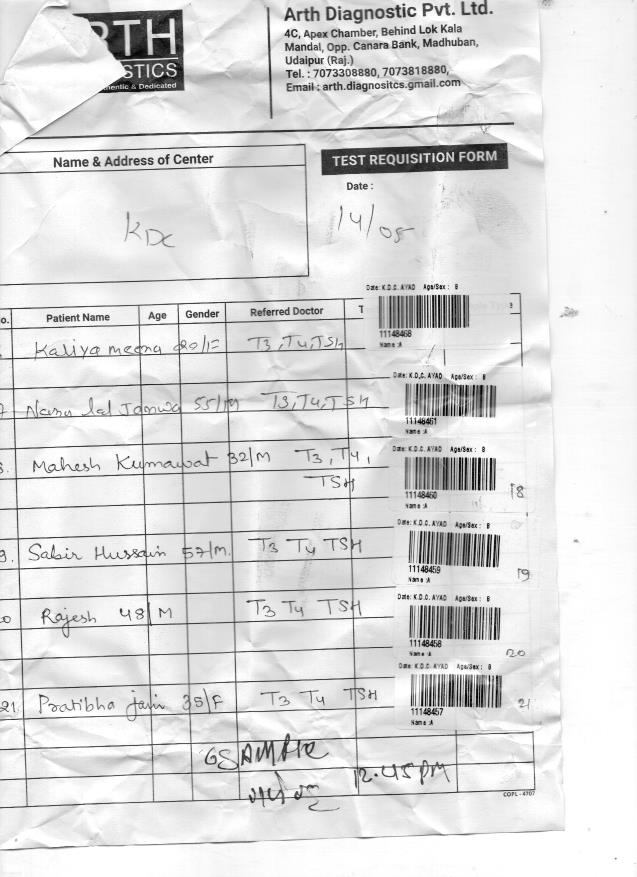 ARTH
STICS
hentic & Dedicated
Arth Diagnostic Pvt. Ltd.
4C, Apex Chamber, Behind Lok Kala
Mandal, Opp. Canara Bank, Madhuban,
Udaipur (Raj.)
Tel. : 7073308880, 7073818880,
Email : arth.diagnositcs.gmail.com
Name & Address of Center
TEST REQUISITION FORM
Date :
KDC
14/05
o. Patient Name Age Gender Referred Doctor T
Date: K.D.C. AYAD Age/Sex : B
11148468
Name :A
Kaliya meena 20/F T3, T4, TSH
Date: K.D.C. AYAD Age/Sex : B
11148461
Name :A
lal 55/M T3, T4, TSH
Date: K.D.C. AYAD Age/Sex : B
11148460
Name :A
18
8. Mahesh Kumawat 32/M T3, T4,
TSH
Date: K.D.C. AYAD Age/Sex : B
11148459
Name :A
19
9. Sabir Hussain 57/M. T3 T4 TSH
Date: K.D.C. AYAD Age/Sex : B
11148458
Name :A
20
0 Rajesh 48/M T3 T4 TSH
Date: K.D.C. AYAD Age/Sex : B
11148457
Name :A
21
21. Pratibha jain 35/F T3 T4 TSH
12.45 PM
COPL - 4707